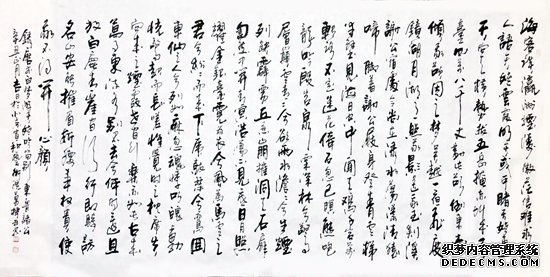 海客谈瀛洲烟涛微茫信难求越
人语天姥云霞明灭或可睹天姥连
天向天横势拔五岳掩赤城天
台四万八千丈对此欲倒东南
倾我欲因之梦吴越一夜飞度
镜湖月湖月照我影送我至剡溪
谢公宿处今尚在渌水荡漾清猿
啼脚著谢公屐身登青云梯
半壁见海日空中闻天鸡千岩万
转路不定迷花倚石忽已暝熊咆
龙吟殷岩泉栗深林兮惊
层巅云青青兮欲雨水澹澹兮生烟
列缺霹雳丘峦崩摧洞天石扉
訇然中开青冥浩荡不见底日月照
耀金银台霓为衣兮风为马云之
君兮纷纷而来下虎鼓瑟兮鸾回
车仙之人兮列如麻忽魂悸以魄动
恍惊起而长嗟惟觉时之枕席失
向来之烟霞世间行乐亦如此古来
万事东流水别君去兮何时还且
放白鹿青崖间须行即骑访
名山安能摧眉折腰事权贵使
我不得开心颜
织梦内容管理系统
DEDECMS.COM